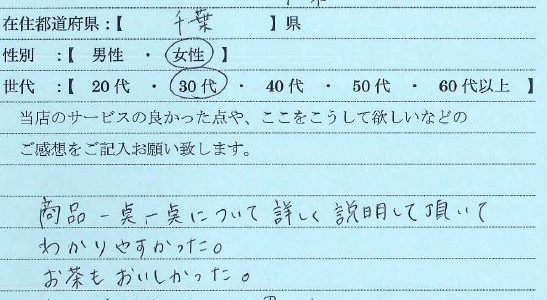 在住都道府県:【 千葉 】県
性別 :【 男性 ・ 女性 】
世代 :【 20代 ・ 30代 ・ 40代 ・ 50代 ・ 60代以上 】
当店のサービスの良かった点や、ここをこうして欲しいなどの
ご感想をご記入お願い致します。
商品一点一点について詳しく説明して頂いて
わかりやすかった。
お茶もおいしかった。